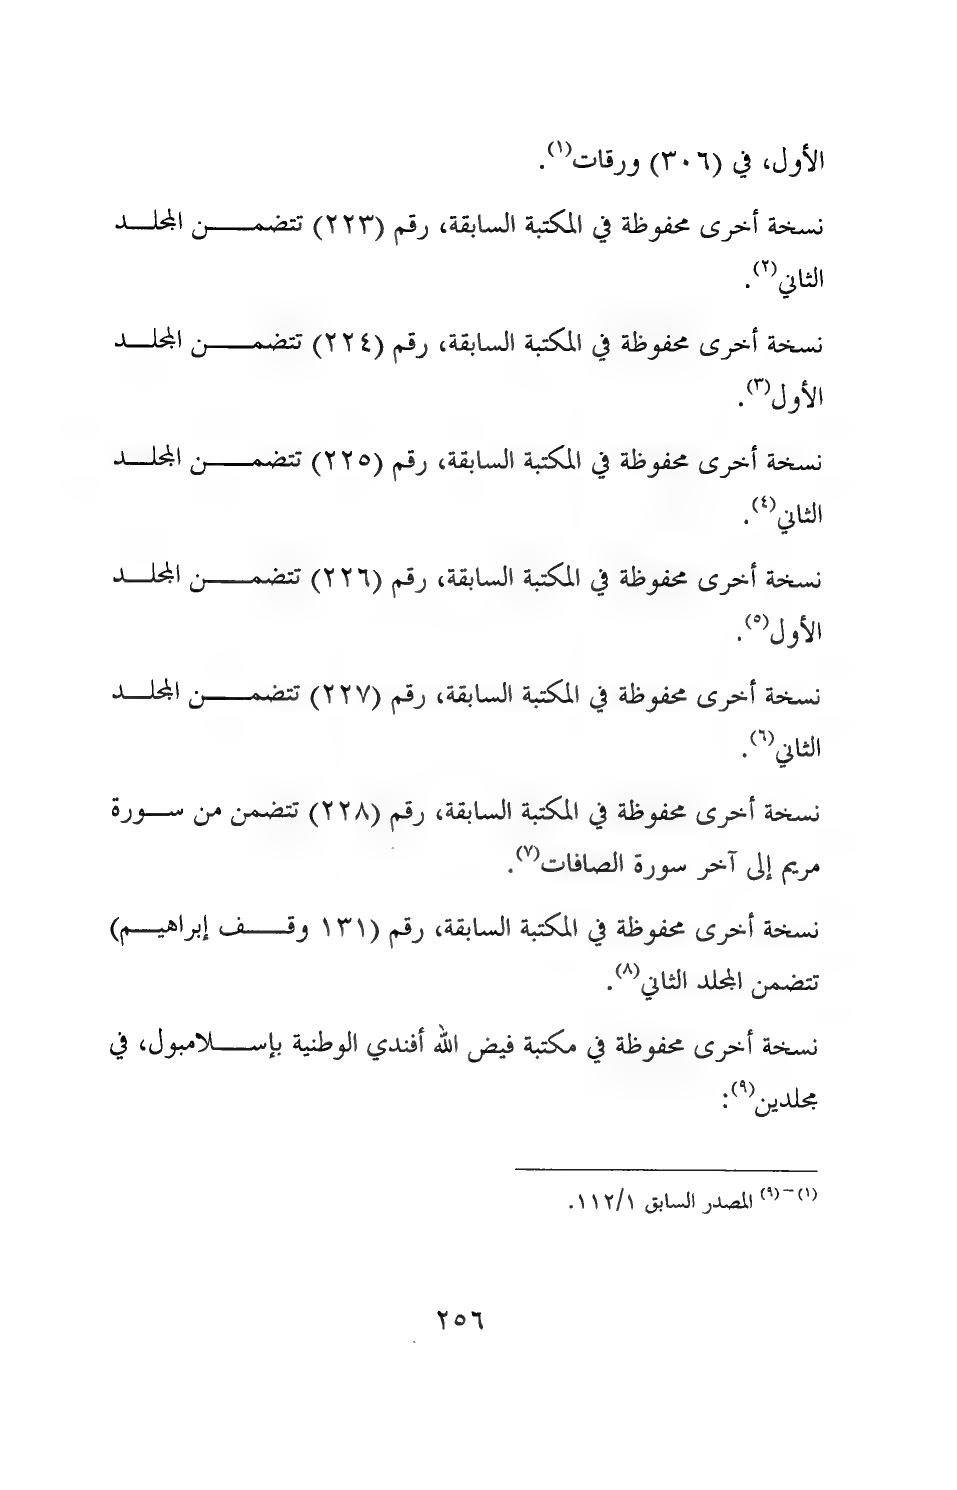 الأول، في (٣٠٦) ورقات(١).
نسخة أخرى محفوظة في المكتبة السابقة، رقم (٢٢٣) تتضمـــــن المجلـــد
الثاني(٢).
نسخة أخرى محفوظة في المكتبة السابقة، رقم (٢٢٤) تتضمـــــن المجلـــد
الأول(٣).
نسخة أخرى محفوظة في المكتبة السابقة، رقم (٢٢٥) تتضمـــــن المجلـــد
الثاني(٤).
نسخة أخرى محفوظة في المكتبة السابقة، رقم (٢٢٦) تتضمـــــن المجلـــد
الأول(٥).
نسخة أخرى محفوظة في المكتبة السابقة، رقم (٢٢٧) تتضمـــــن المجلـــد
الثاني(٦).
نسخة أخرى محفوظة في المكتبة السابقة، رقم (٢٢٨) تتضمن من ســـورة
مريم إلى آخر سورة الصافات(٧).
نسخة أخرى محفوظة في المكتبة السابقة، رقم (١٣١ وقـــــف إبراهيـــم)
تتضمن المجلد الثاني(٨).
نسخة أخرى محفوظة في مكتبة فيض الله أفندي الوطنية بإســـــلامبول، في
مجلدين(٩):
(١)–(٩) المصدر السابق ١١٢/١.
٢٥٦